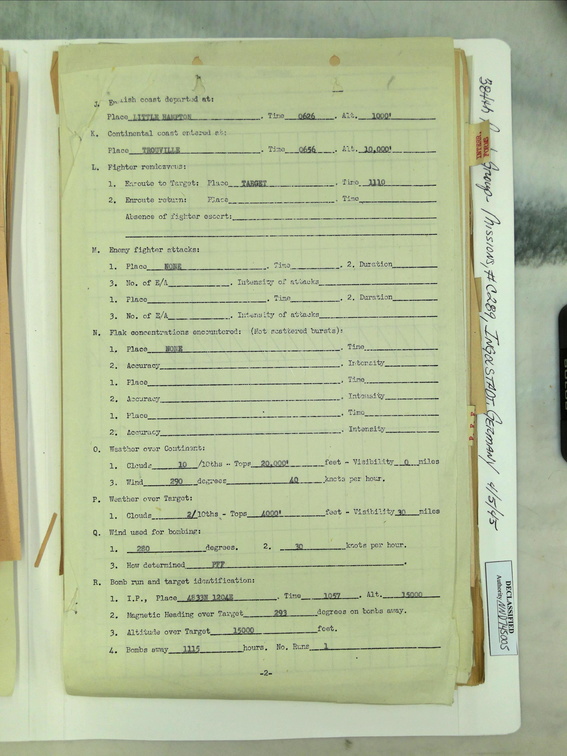 J. English coast departed at:
Place LITTLE HAMPTON . Time 0626 . Alt. 1000'
K. Continental coast entered at:
Place TROUVILLE . Time 0656 . Alt. 10,000'
L. Fighter rendezvous:
1. Enroute to Target: Place TARGET Time 1110
2. Enroute return: Place Time
Absence of fighter escort:
M. Enemy fighter attacks:
1. Place NONE . Time . 2. Duration
3. No. of E/A . Intensity of attacks
1. Place . Time . 2. Duration
3. No. of E/A . Intensity of attacks
N. Flak concentrations encountered: (Not scattered bursts):
1. Place NONE . Time
2. Accuracy . Intensity
1. Place . Time
2. Accuracy . Intensity
1. Place . Time
2. Accuracy . Intensity
O. Weather over Continent:
1. Clouds 10 /10ths - Tops 20,000' feet - Visibility 0 miles
3. Wind 290 degrees 40 knots per hour.
P. Weather over Target:
1. Clouds 2/10ths - Tops 4000' feet - Visibility 30 miles
Q. Wind used for bombing:
1. 280 degrees. 2. 30 knots per hour.
3. How determined PFF .
R. Bomb run and target identification:
1. I.P., Place 4833N 1204E . Time 1057 . Alt. 15000
2. Magnetic Heading over Target 293 degrees on bombs away.
3. Altitude over Target 15000 feet.
4. Bombs away 1115 hours. No. Runs 1
-2-
384th Bomb Group - Missions, #C289, INGOLSTADT, Germany 4/5/45
DECLASSIFIED
Authority NND 745005